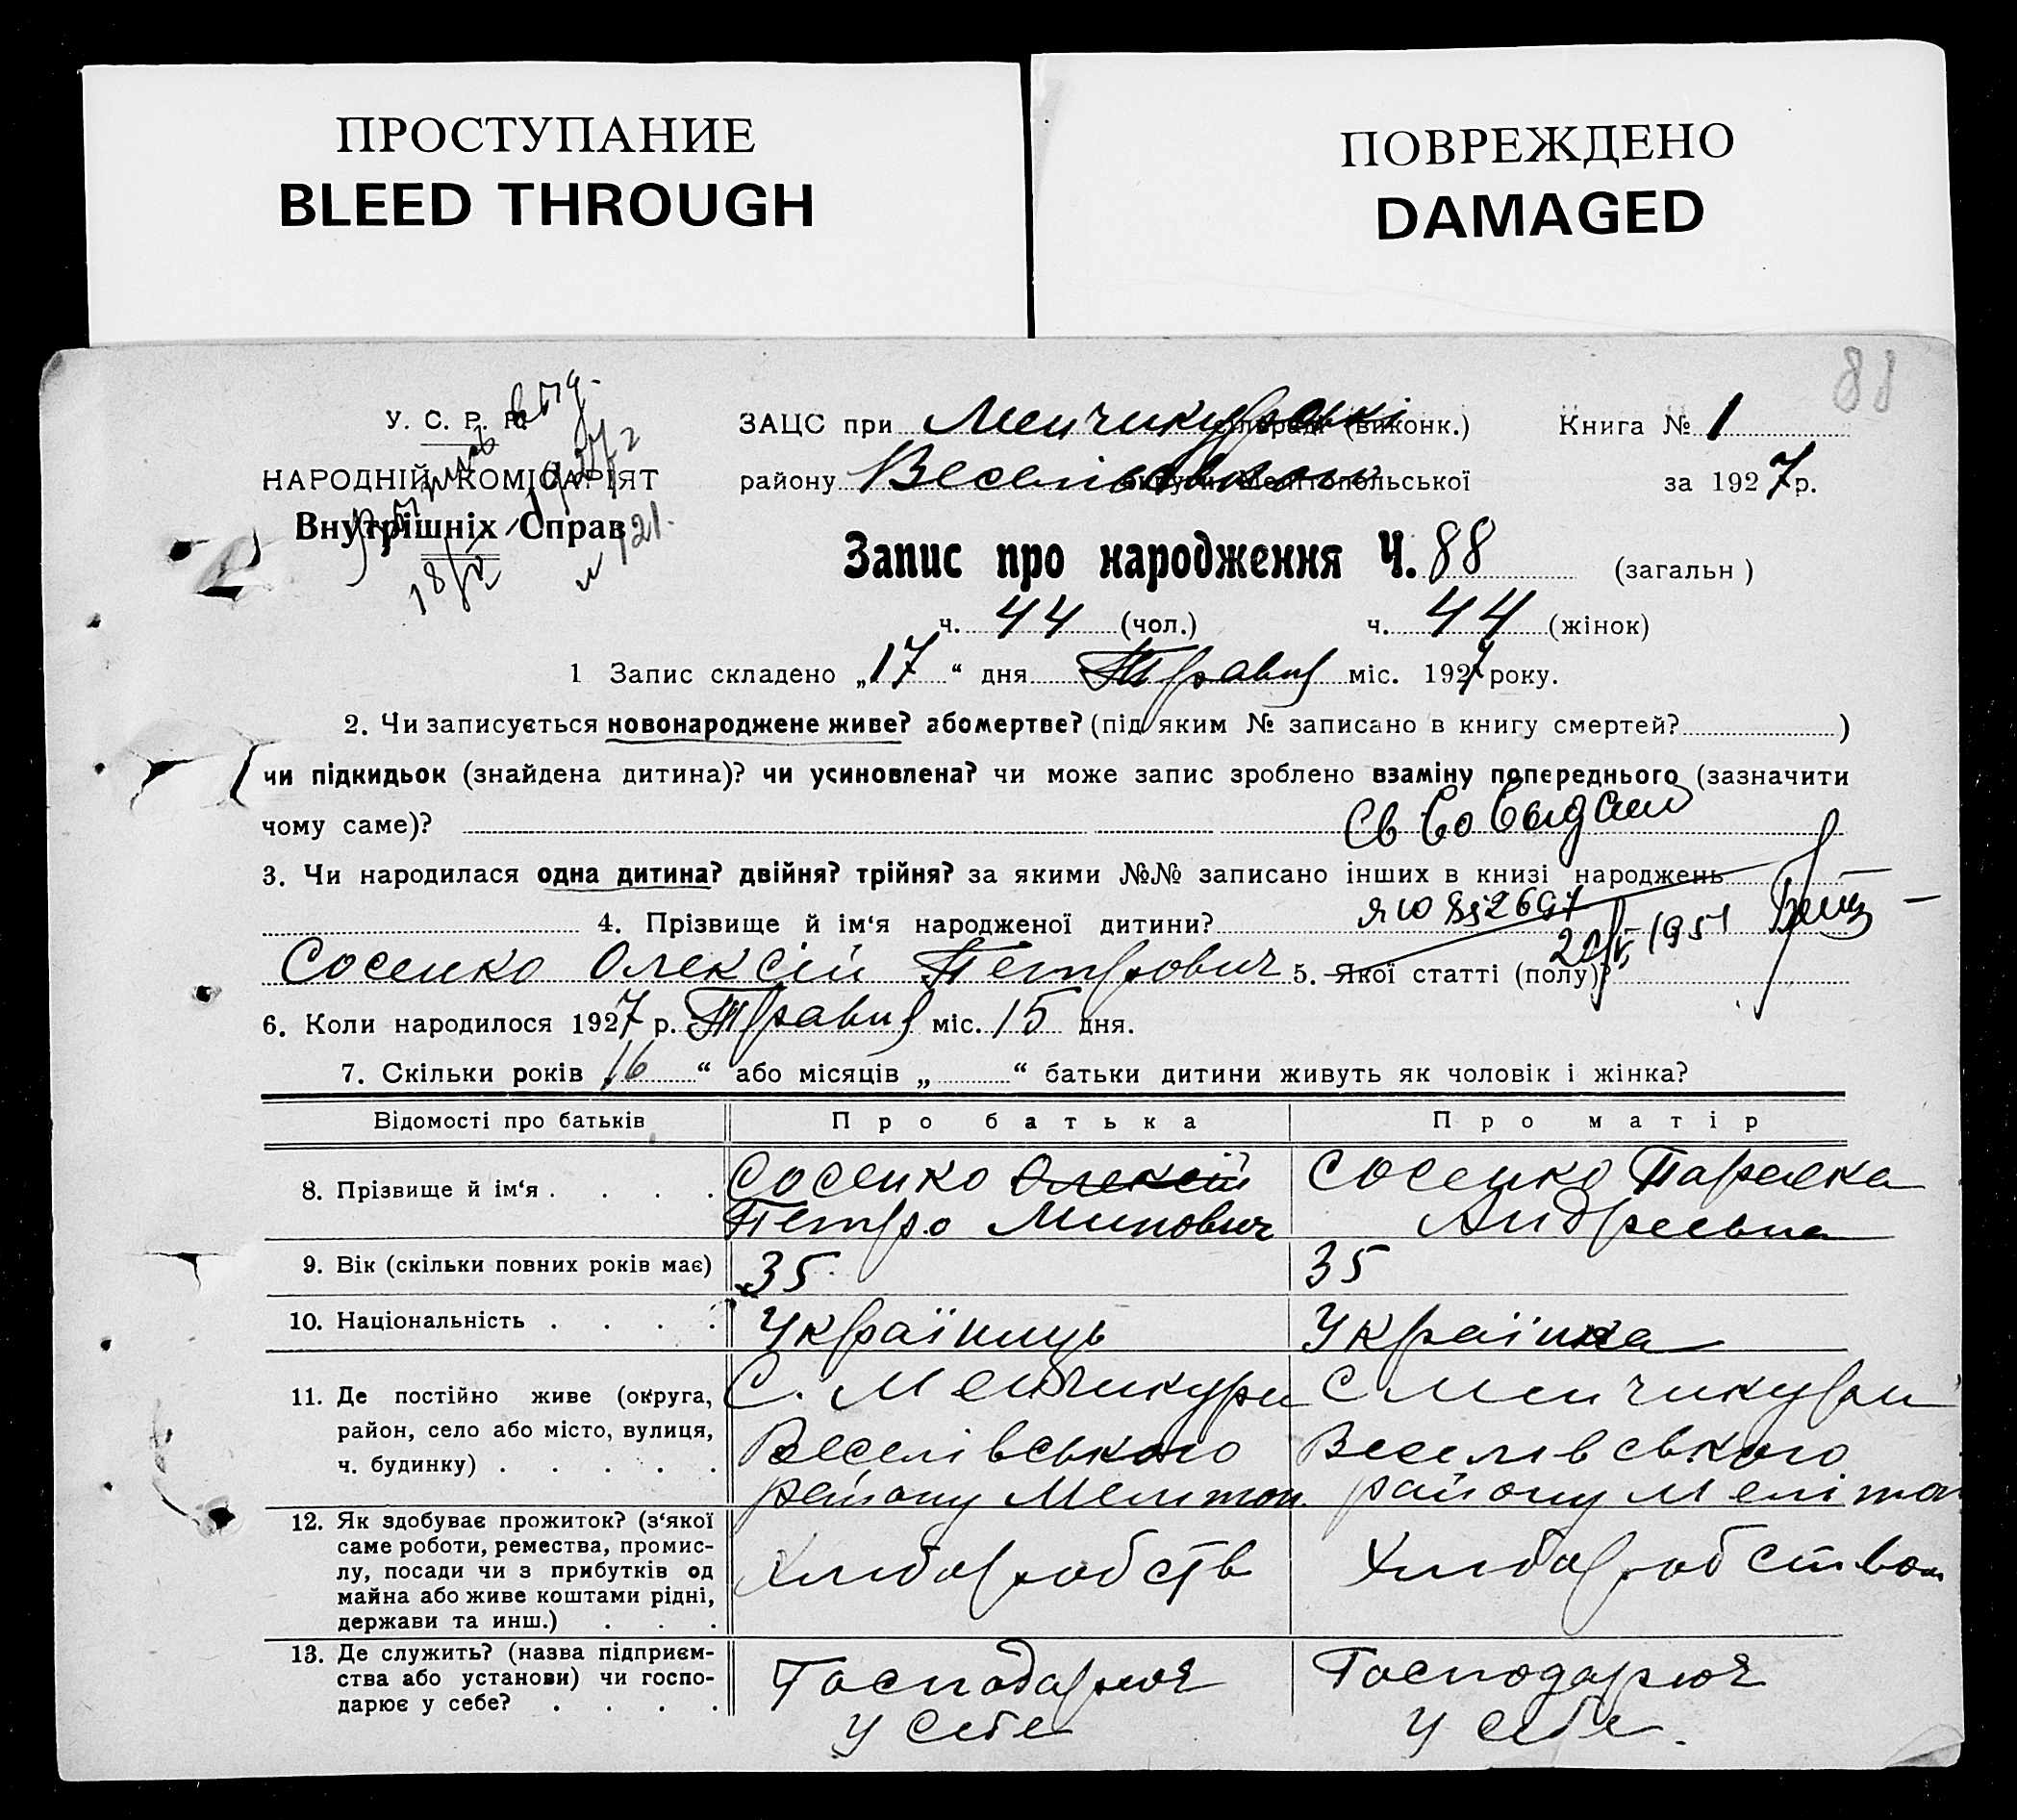 ПРОСТУПАНИЕ
BLEED THROUGH
ПОВРЕЖДЕНО
DAMAGED
88
У. С. Р. Р.
НАРОДНІЙ КОМІСАРІЯТ
Внутрішніх Справ
ЗАЦС при Менчикурські (виконк.) Книга № 1
району Веселівського Мелітопольської за 1927 р.
Запис про народження Ч. 88 (загальн )
ч. 44 (чол.) ч. 44 (жінок)
1 Запис складено „17“ дня Травня міс. 1927 року.
2. Чи записується новонароджене живе? або мертве? (під яким № записано в книгу смертей? )
чи підкидьок (знайдена дитина)? чи усиновлена? чи може запис зроблено взаміну попереднього (зазначити
чому саме)? Св во выдан
3. Чи народилася одна дитина? двійня? трійня? за якими №№ записано інших в книзі народжень
4. Прізвище й ім'я народженої дитини? 1951
Сосенко Олексій Петрович 5. Якої статті (полу)?
6. Коли народилося 1927 р. Травня міс. 15 дня.
7. Скільки років 16 “ або місяців „ “ батьки дитини живуть як чоловік і жінка?
Відомості про батьків Про батька Про матір
8. Прізвище й ім'я . . . . Сосенко Олексій Сосенко Параска
Петро Минович Андреевна
9. Вік (скільки повних років має) 35 35
10. Національність . . . . Україниць Українка
11. Де постійно живе (округа, С. Менчикури С Менчикури
район, село або місто, вулиця, Веселівського Веселівського
ч. будинку) . . . . . району Мелитоп. району Меліто
12. Як здобуває прожиток? (з'якої
саме роботи, ремества, промис-
лу, посади чи з прибутків од Хлибороб ств Хлиборобством
майна або живе коштами рідні,
держави та инш.) . . .
13. Де служить? (назва підприєм-
ства або установи) чи госпо- Господарює Господарює
дарює у себе? . . . . у себе у себе.